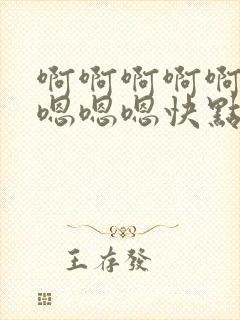 啊啊啊啊啊
嗯嗯嗯快點
王存發